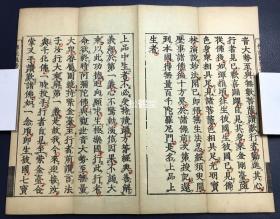 音大勢至與無數菩薩讚歎行者勸進其心
行者見已歡喜踊躍自見其身乘金剛臺隨
從佛後如彈指頃往生彼國生彼國已見佛
色身衆相具足見諸菩薩色相具足光明寶
林演說妙法聞已即悟無生法忍經須臾間
歷事諸佛遍十方界於諸佛前次第受記還
到本國得無量百千陀羅尼門是名上品上
生者
上品中生者不必受持讀誦方等經典善解
義趣於第一義心不驚動深信因果不謗大
乘以此功德迴向願求生極樂國行此行者
命欲終時阿彌陀佛與觀世音大勢至無量
大衆眷屬圍繞持紫金臺至行者前讚言法
子汝行大乘解第一義是故我今來迎接汝
與千化佛一時授手行者自見坐紫金臺合
掌叉手讚歎諸佛如一念頃即生彼國七寶